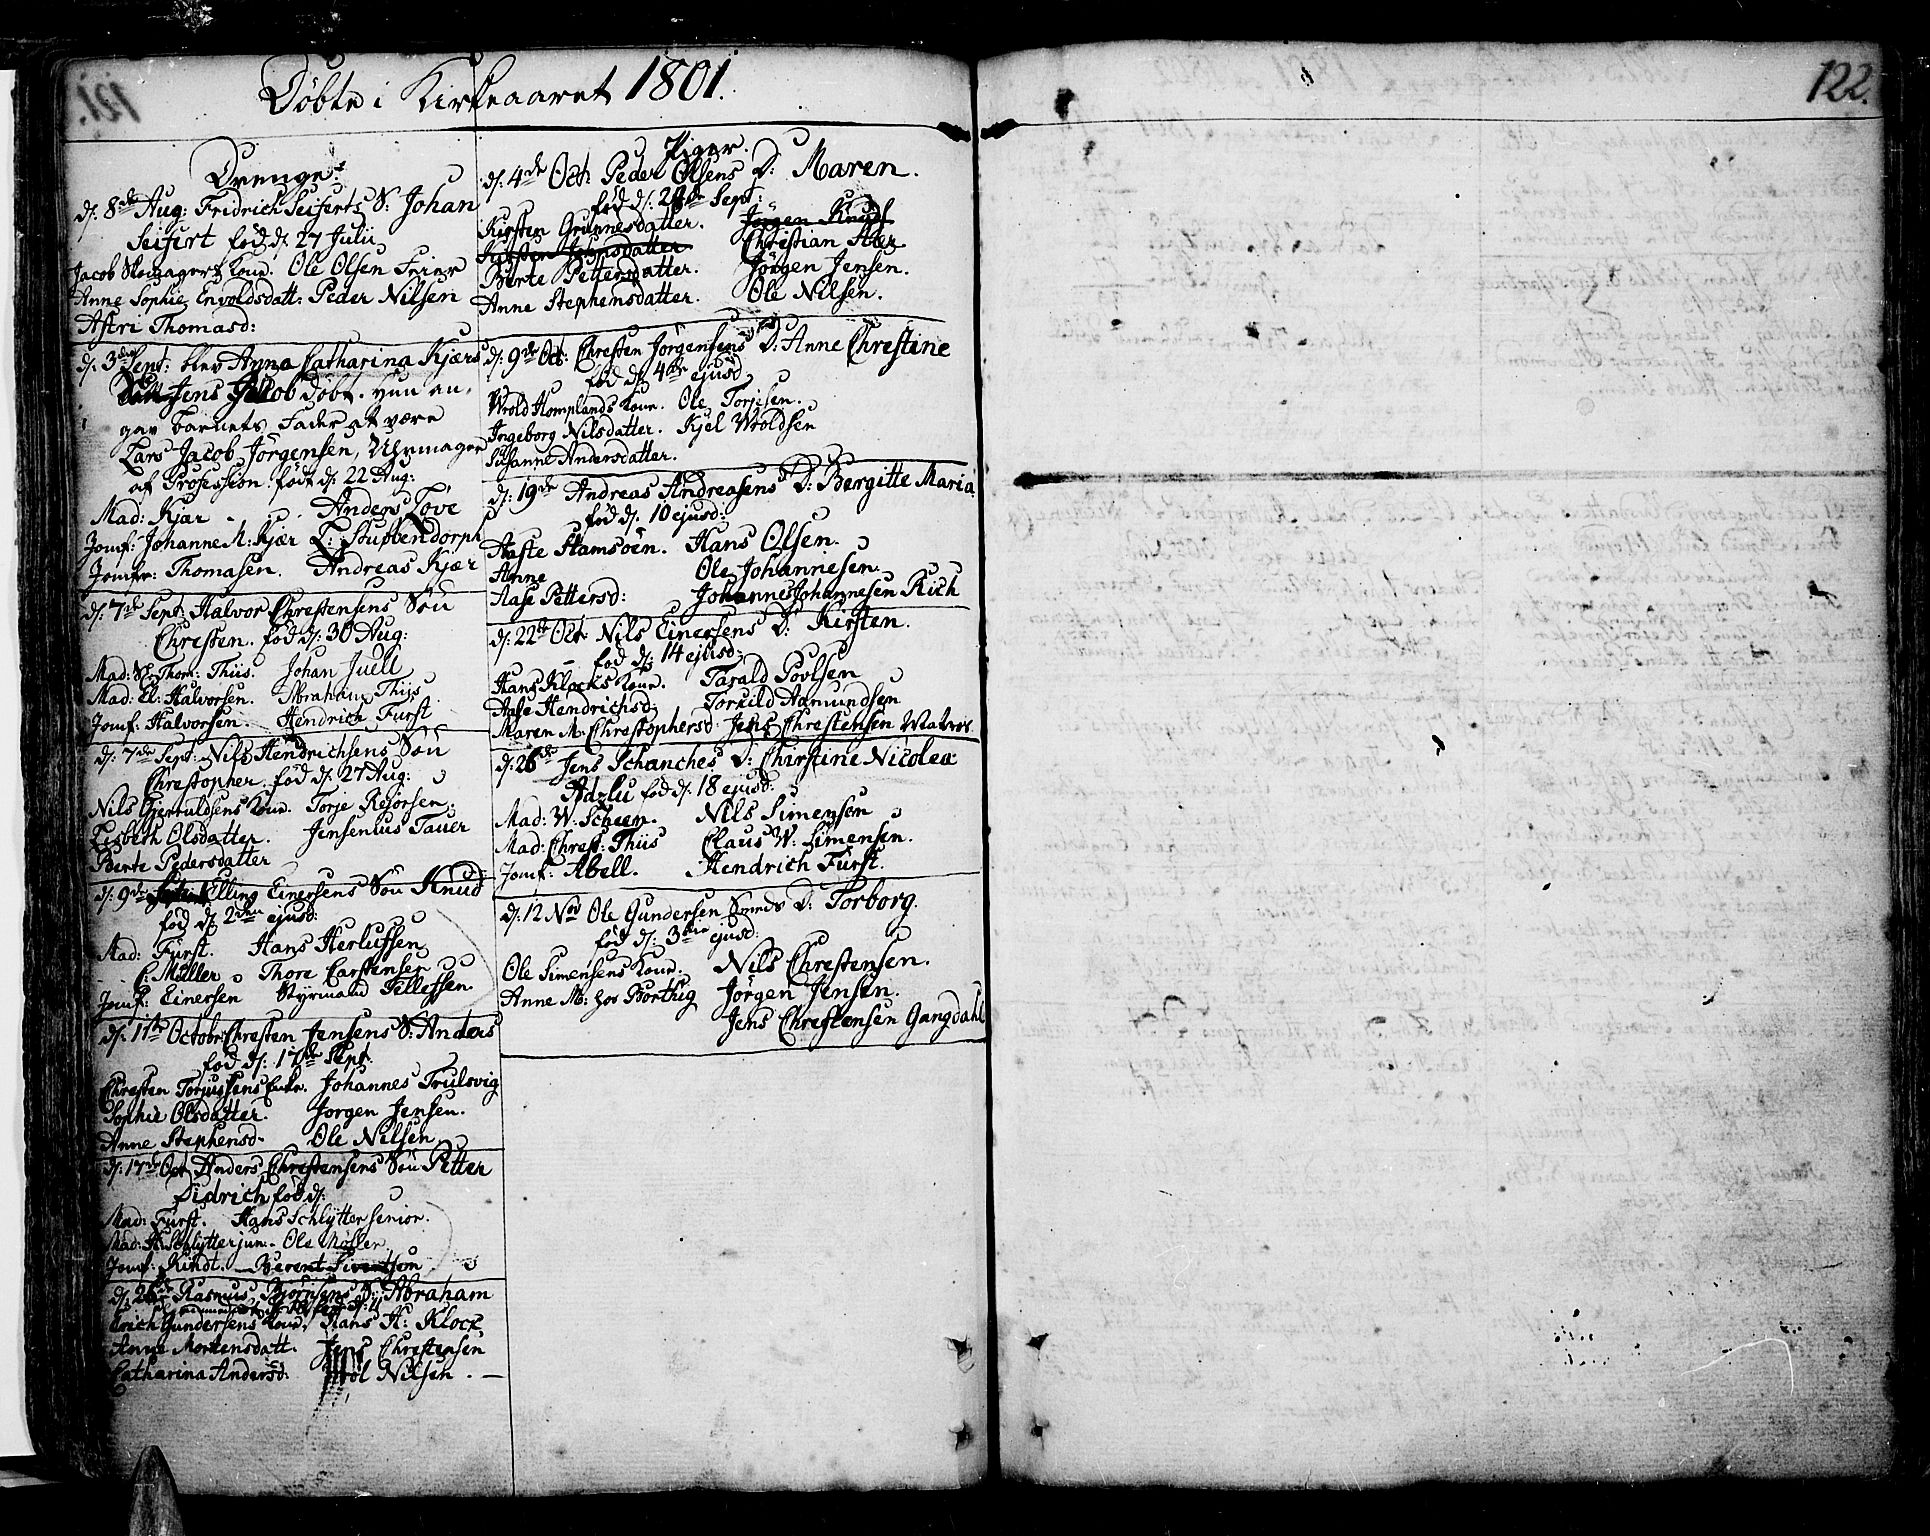 Døbte i Kirkeaaret 1801.
122.
Drenge:
d: 8de Aug: Fridrich Seiferts S: Johan
Seifert fød d: 27 Julii
Jacob Skomagers Kone. Ole Olsen Feier
Anne Sophie Envoldsdatt: Peder Nilsen
Astri Thomasd:
d: 3die Sept: blev Anna Catharina Kjærs
Søn Jens Jacob døbt. Hun an-
gav Barnets Fader at være
Lars Jacob Jörgensen, Uhrmager
af Profession. født d: 22 Aug:
Mad: Kjær Anders Töve
Jomf: Johanne M: Kjær L: Stubbendorph
Jomfr: Thomasen. Andreas Kjær
d: 7de Sept: Halvor Christensens Søn
Christen. fød d: 30 Aug:
Mad: Sl: Thom: Thiis. Johan Juell
Mad: El: Halvorsen. Abraham Thiis
Jomf: Halvorsen. Hendrich Furst
d: 7de Sept: Nils Hendrichsens Søn
Christopher. fød d: 27 Aug:
Nils Gjeruldsens Kone. Torje Rejorsen.
Lisbeth Olsdatter. Jensenius Tauer
Berte Pedersdatter
d: 9de Elling Einersens Søn Knud
fød d: 2den ejusd:
Mad: Fürst. Hans Herlufsen
C: Müller Thore Carstensen
Jomf: Einersen Styrmand Tellefsen
d: 11te Octobr Christen Jensens S: Anders
fød d: 17de Sept:
Christen Torjussens Enke. Johannes Trulsvig
Sophie Olsdatter. Jörgen Jensen.
Anne Stephensd- Ole Nilsen
d: 17de Oct Anders Christensens Søn Petter
Didrich fød d:
Mad: Fürst. Hans Schlytter senior.
Mad: H Schlytter jun. Ole Møller
Jomf: Kindt. Berent Sivertsøn
d: 26de Rasmus Björnsens S: Abraham
Erich Gundersens Kone. Hans H: Klock
Anne Mortensdatt. Jens Christensen
Catharina Andersd: Nilsen.
Piger.
d: 4de Oct: Peder Olsens D: Maren.
fød d: 24de Sept:
Kirsten Grunnesdatter. Jörgen Knuds
Kirsten Johnsdatter Christian Stær
Berte Pettersdatter. Jörgen Jensen.
Anne Stephensdatter. Ole Nilsen.
d: 9de Oct: Christen Jörgensens D: Anne Christine
fød d: 4de ejusd
Wrold Homplands Kone. Ole Torjesen.
Ingeborg Nilsdatter. Kjel Wroldsen
Susanne Andersdatter.
d: 19de Andreas Andreasens D: Bergitte Maria
fød d: 10 ejusd:
Aaste Stamsöen. Hans Olsen.
Anne Ole Johannesen
Aase Pettersd: Johannes Johannesen Rich
d: 22de Oct: Nils Einersens D: Kirsten.
fød d: 14 ejusd:
Hans Klocks Kone. Tarald Povlsen
Aase Hendrichsd: Torkild Aamundsen
Maren M: Christophersd: Jens Christensen
d: 26de Jens Schanches D: Christine Nicolea
Adzlu fød d: 18 ejusd:
Mad: W. Scheen. Nils Simensøn
Mad: Christ: Thiis Claus W: Simensen.
Jomf: Abell. Hendrich Fürst.
d: 12 Nov Ole Gundersen Smeds D: Torborg.
fød d: 3die ejusd:
Ole Simensens Kone. Nils Christensen.
Anne M: hos Borthig Jörgen Jensen.
Jens Christensen Gangdahl